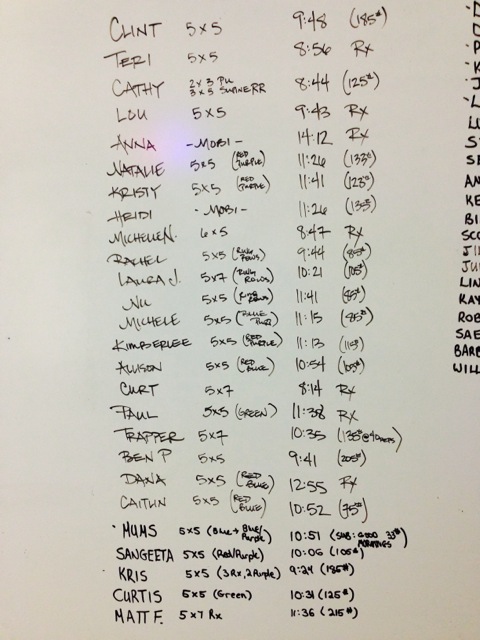 CLINT 5x5 9:48 (185#)
TERI 5x5 8:56 Rx
CATHY 2x3 PU 3x5 SUPINE RR 8:44 (125#)
LOU 5x5 9:43 Rx
ANNA -MOBI- 14:12 Rx
NATALIE 5x5 (RED PURPLE) 11:26 (133#)
KRISTY 5x5 (RED PURPLE) 11:41 (123#)
HEIDI -MOBI- 11:26 (135#)
MICHELLE N. 6x5 8:47 Rx
RACHEL 5x5 (RING ROWS) 9:44 (85#)
LAURA J. 5x7 (RING ROWS) 10:21 (105#)
NU 5x5 (RING ROWS) 11:41 (85#)
MICHELE 5x5 (BLUE PURP) 11:15 (85#)
KIMBERLEE 5x5 (RED PURPLE) 11:13 (115#)
ALLISON 5x5 (RED BLUE) 10:54 (105#)
CURT 5x7 8:14 Rx
PAUL 5x5 (GREEN) 11:38 Rx
TRAPPER 5x7 10:35 (135#@40REPS)
BEN P 5x5 9:41 (205#)
DANA 5x5 (RED BLUE) 12:55 Rx
CAITLIN 5x5 (RED BLUE) 10:52 (75#)
MUMS 5x5 (Blue→Blue/Purple) 10:51 (SUB: GOOD MORNINGS 33#)
SANGEETA 5x5 (Red/Purple) 10:06 (105#)
KRIS 5x5 (3Rx, 2Purple) 9:24 (185#)
CURTIS 5x5 (Green) 10:31 (125#)
MATT F. 5x7 Rx 11:36 (215#)